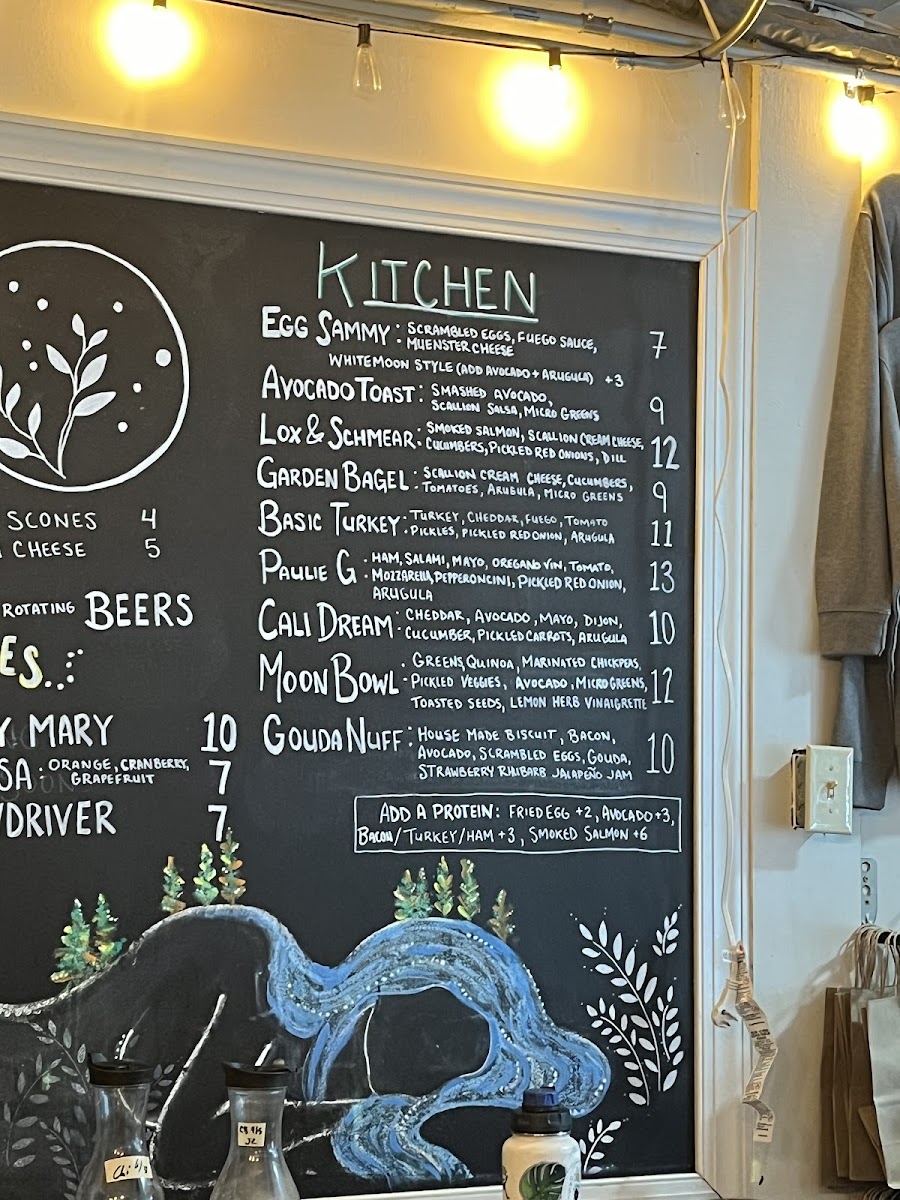 KITCHEN
EGG SAMMY: SCRAMBLED EGGS, FUEGO SAUCE, 7
MUENSTER CHEESE
WHITEMOON STYLE (ADD AVOCADO + ARUGULA) +3
AVOCADO TOAST: SMASHED AVOCADO,
SCALLION SALSA, MICRO GREENS 9
LOX & SCHMEAR: SMOKED SALMON, SCALLION CREAM CHEESE, 12
CUCUMBERS, PICKLED RED ONIONS, DILL
GARDEN BAGEL: SCALLION CREAM CHEESE, CUCUMBERS, 9
TOMATOES, ARUGULA, MICRO GREENS
BASIC TURKEY: TURKEY, CHEDDAR, FUEGO, TOMATO 11
PICKLES, PICKLED RED ONION, ARUGULA
PAULIE G: HAM, SALAMI, MAYO, OREGANO VIN, TOMATO, 13
MOZZARELLA, PEPPERONCINI, PICKLED RED ONION,
ARUGULA
CALI DREAM: CHEDDAR, AVOCADO, MAYO, DIJON, 10
CUCUMBER, PICKLED CARROTS, ARUGULA
MOON BOWL: GREENS, QUINOA, MARINATED CHICKPEAS,
PICKLED VEGGIES, AVOCADO, MICRO GREENS, 12
TOASTED SEEDS, LEMON HERB VINAIGRETTE
GOUDA NUFF: HOUSE MADE BISCUIT, BACON,
AVOCADO, SCRAMBLED EGGS, GOUDA, 10
STRAWBERRY RHUBARB JALAPEÑO JAM
ADD A PROTEIN: FRIED EGG +2, AVOCADO +3,
BACON/TURKEY/HAM +3, SMOKED SALMON +6
SCONES 4
CHEESE 5
ROTATING BEERS
ES...
Y MARY 10
SA: ORANGE, CRANBERRY, 7
GRAPEFRUIT
DRIVER 7